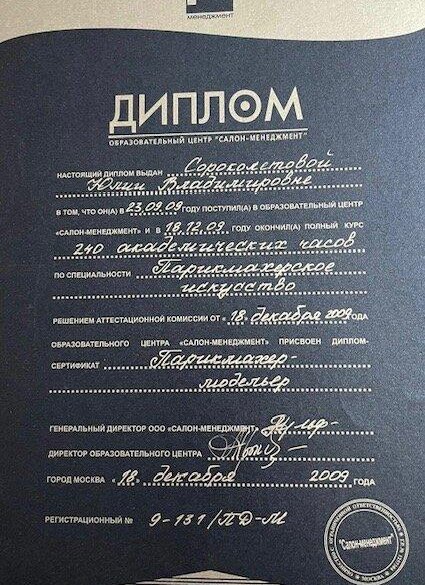 менеджмент
ДИПЛОМ
ОБРАЗОВАТЕЛЬНЫЙ ЦЕНТР "САЛОН-МЕНЕДЖМЕНТ"
НАСТОЯЩИЙ ДИПЛОМ ВЫДАН Сороколетовой
Юлии Владимировне
В ТОМ, ЧТО ОН(А) В 23.09.09 ГОДУ ПОСТУПИЛ(А) В ОБРАЗОВАТЕЛЬНЫЙ ЦЕНТР
«САЛОН-МЕНЕДЖМЕНТ» И В 18.12.09. ГОДУ ОКОНЧИЛ(А) ПОЛНЫЙ КУРС
240 академических часов
ПО СПЕЦИАЛЬНОСТИ Парикмахерское
искусство
РЕШЕНИЕМ АТТЕСТАЦИОННОЙ КОМИССИИ ОТ « 18. декабря 2009 ГОДА
ОБРАЗОВАТЕЛЬНОГО ЦЕНТРА «САЛОН-МЕНЕДЖМЕНТ» ПРИСВОЕН ДИПЛОМ-
СЕРТИФИКАТ Парикмахер-
модельер
ГЕНЕРАЛЬНЫЙ ДИРЕКТОР ООО «САЛОН-МЕНЕДЖМЕНТ»
ДИРЕКТОР ОБРАЗОВАТЕЛЬНОГО ЦЕНТРА
ГОРОД МОСКВА «18. декабря 2009 ГОДА
РЕГИСТРАЦИОННЫЙ № 9-131/ПД-М
"Салон-менеджмент"
МОСКВА